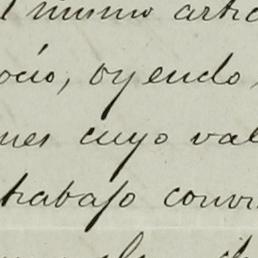 l mismo artic
ocio, oyendo,
nes cuyo val
trabajo conv